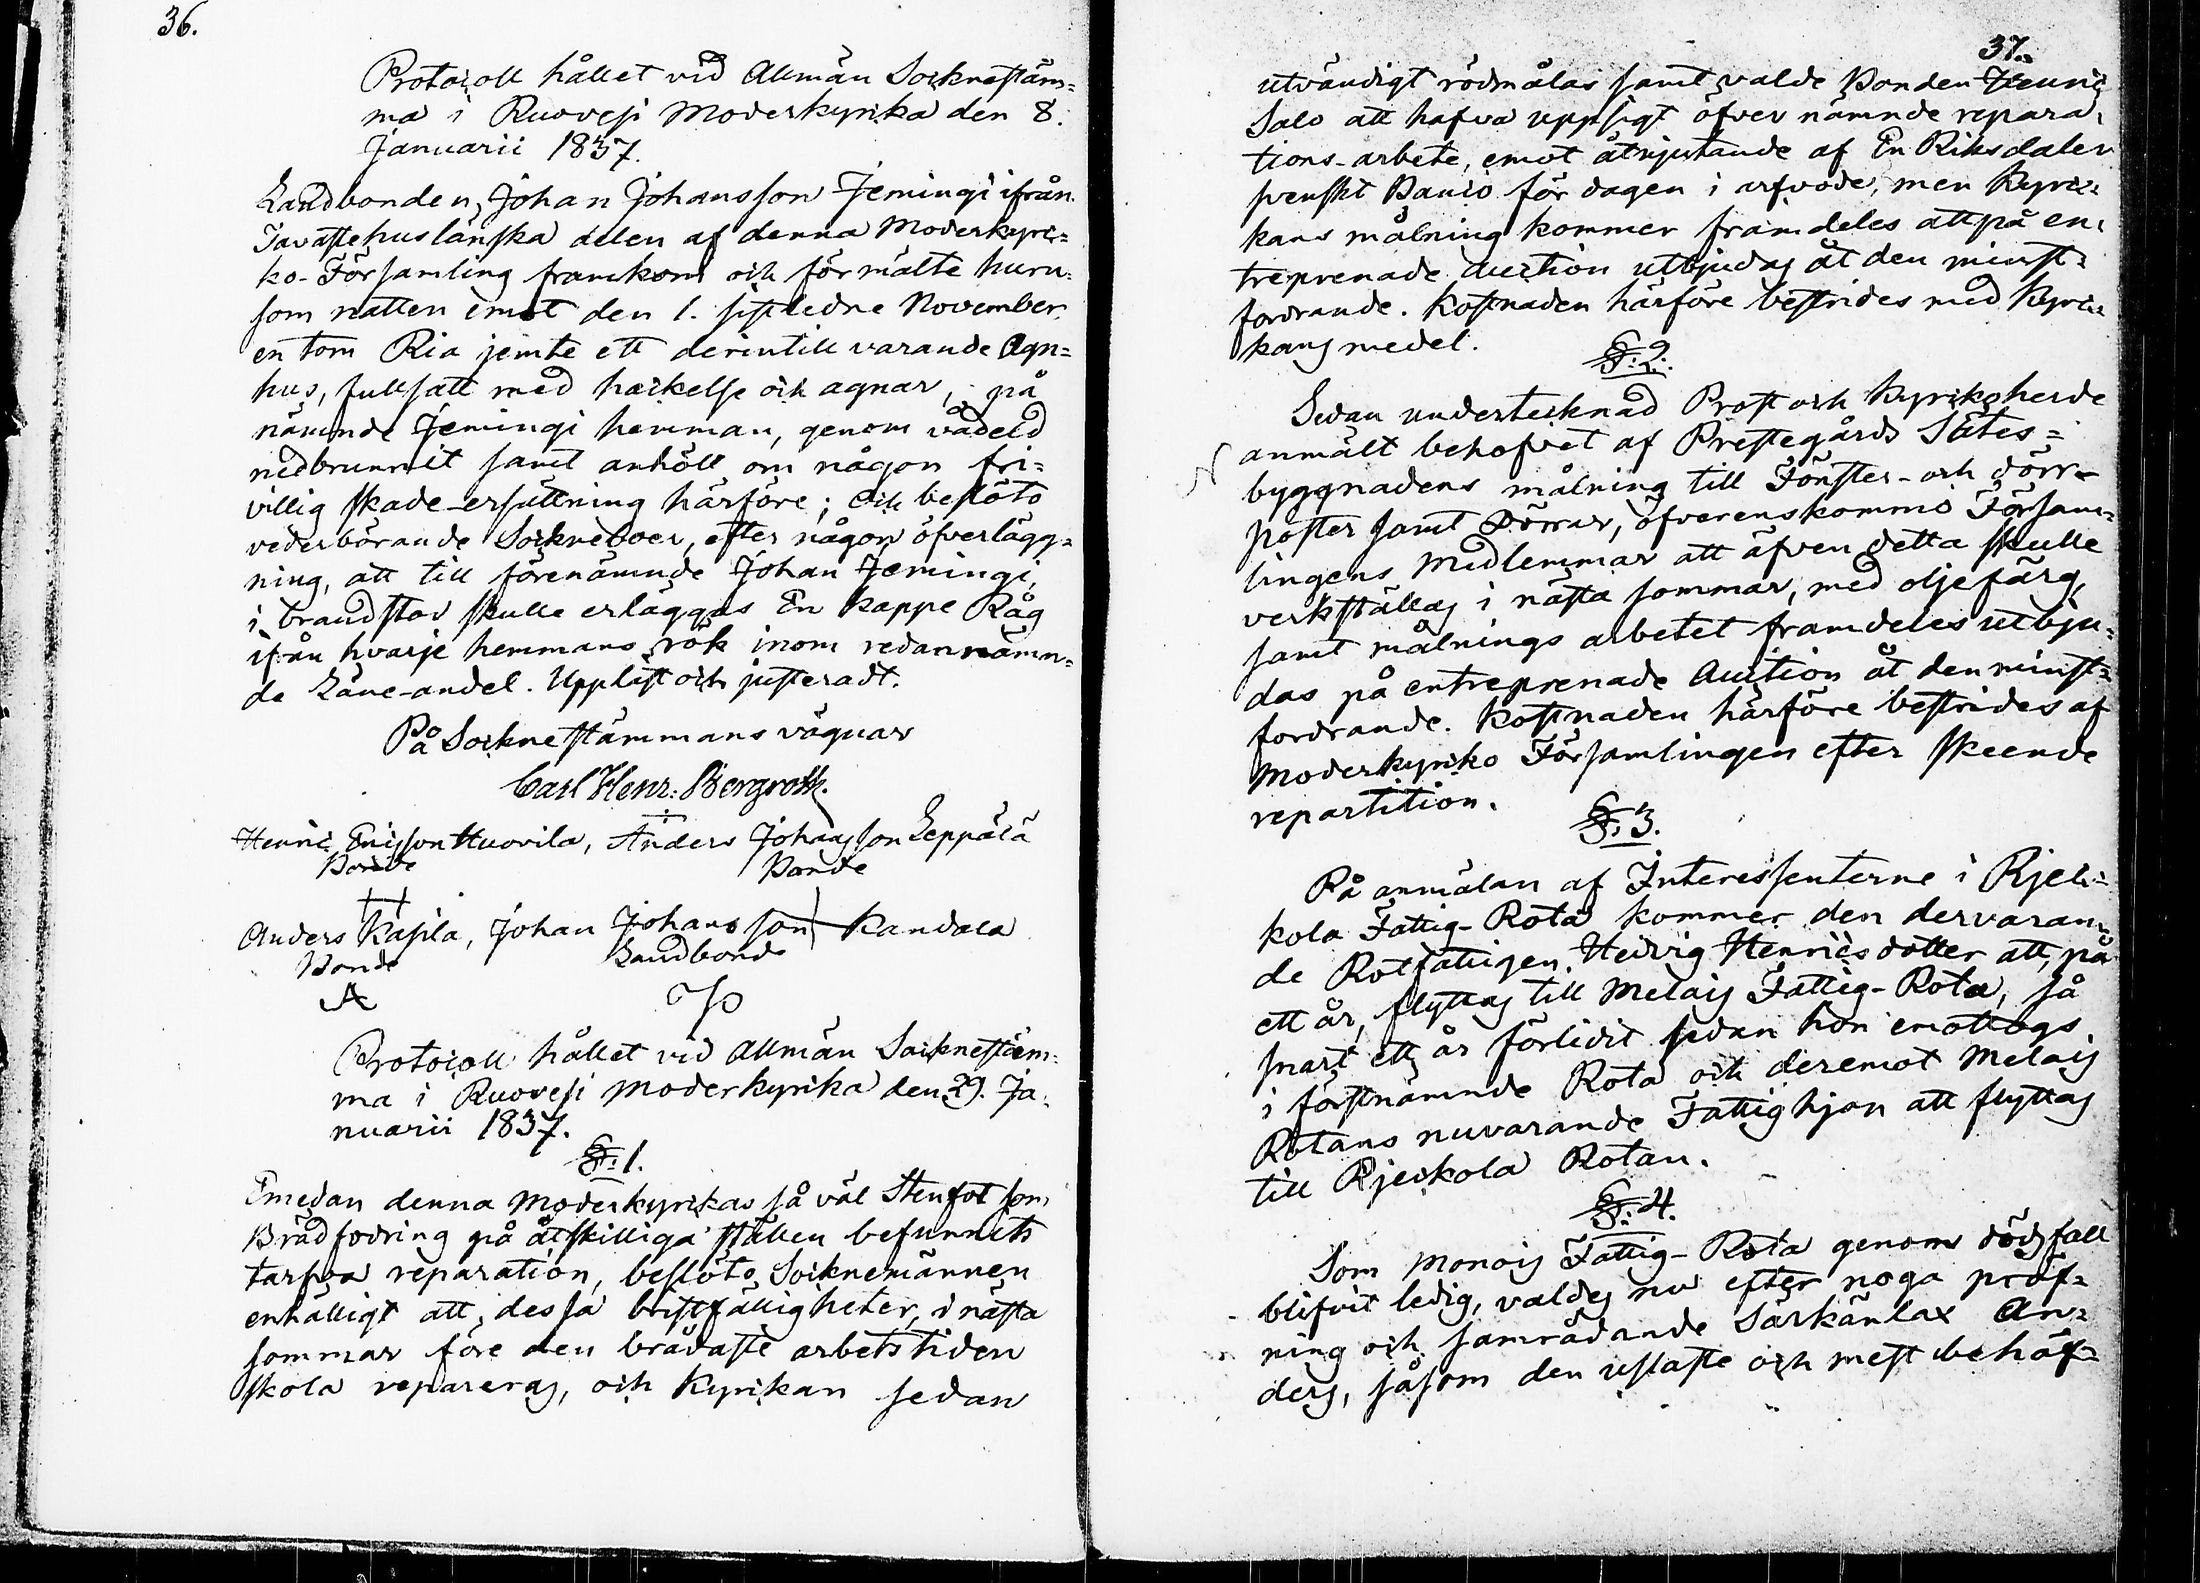 36.
Protocoll hållet vid Allmän Sockneställ=
ma i Ruovesi Moderkyrka den 8.
Januarii 1837.
Landbonden, Johan Johansson Jemingi ifrån
Tavastehus länska delen af denna Moderkyr=
ko-Församling framkom och förmälte huru=
som natten emot den 1. sistledne November
en tom Ria jemte ett derintill varande Agn=
hus, fullsatt med hackelse och agnar, på
nämnde Jemingi hemman, genom vådeld
nedbrunnit samt anhöll om någon fri=
villig skade-ersättning härföre; och beslöto
vederbörande Sockneboer, efter någon öfverlägg=
ning, att till förenämnde Johan Jemingi,
i brandstod skulle erläggas En kappe Råg
ifrån hvarje hemmans rök inom redannämn=
de Läne-andel. Upplist och justeradt.
På Socknestämmans vägnar
Carl Henr: Bergroth.
Henric Ericsson Huovila, Anders Johansson Leppälä
Bonde Bonde
Anders Kapila, Johan Johansson Kandala
Bonde Landbonde
Protocoll hållet vid Allmän Socknestäm=
ma i Ruovesi Moderkyrka den 29. Ja=
nuarii 1837.
§. 1.
Emedan denna Moderkyrkas så väl Stenfot som
Brädfodring på åtskilliga ställen befunnits
tarfva reparation, beslöto Socknemännen
enhälligt att, dessa bristfälligheter, i nästa
sommar före den brådaste arbetstiden
skola repareras, och Kyrkan sedan
37.
utvändigt rödmålas samt valde Bonden Henric
Salo att hafva uppsigt öfver nämnde repara=
tions-arbete, emot åtnjutande af En Riksdaler
svenskt Banco för dagen i arfvode, men Kyr=
kans målning kommer framdeles att på en=
treprenade auction utbjudas åt den minst=
fordrande. Kostnaden härföre bestrides med Kyr=
kans medel.
§. 2.
Sedan undertecknad Prost och Kyrkoherde
anmält behofvet af Prestegårds Sätes=
byggnadens målning till Fönster- och dörr-
poster samt Dörrar, öfverenskommo Försam=
lingens Medlemmar att äfven detta skulle
verkställas i nästa sommar, med oljefärg,
samt målnings arbetet framdeles utbju=
das på entreprenade Auction åt den minst=
fordrande. Kostnaden härföre bestrides af
Moderkyrko Församlingen efter skeende
repartition.
§. 3.
På anmälan af Interessenterne i Rjeis=
kola Fattig-Rota kommer den dervaran=
de Rotfattigen Hedvig Henricsdotter att, på
ett år, flyttas till Melais Fattig-Rota, så
snart ett år förlidit sedan hon emottogs
i förstnämnde Rota och deremot Melais
Rotans nuvarande Fattighjon att flyttas
till Rjeskola Rotan.
§. 4.
Som Monois Fattig-Rota genom dödsfall
blifvit ledig, valdes nu efter noga pröf=
ning och samrådande Särkänlax An=
ders, såsom den uslaste och mest behöf=